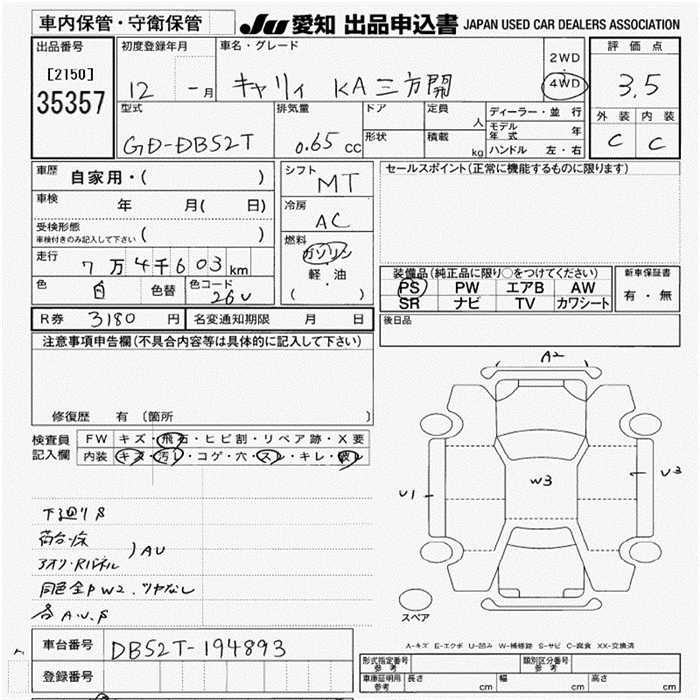 車内保管・守衛保管
JU 愛知 出品申込書 JAPAN USED CAR DEALERS ASSOCIATION
出品番号
[2150]
35357
初度登録年月
12 -月
車名・グレード
キャリィ KA 三方開
2WD
4WD
評価点
3.5
外装 内装
C C
型式
GD-DB52T
排気量
0.65 cc
ドア
形状
定員
人
積載
kg
ディーラー・並行
モデル年式 年
ハンドル 左・右
車歴
自家用・( )
車検
年 月( 日)
受検形態
車検付きのみ記入して下さい ( )
走行
7万4千603km
色
白 色替
色コード
26U
シフト
MT
冷房
AC
燃料
ガソリン
軽油
( ・ )
セールスポイント(正常に機能するものに限ります)
装備品(純正品に限り○をつけてください)
PS PW エアB AW
SR ナビ TV カワシート
新車保証書
有・無
R券 3180 円 名変通知期限 月 日
後日品
注意事項申告欄(不具合内容等は具体的に記入して下さい)
修復歴 有 〔箇所 〕
検査員
記入欄
FW キズ・飛石・ヒビ割・リペア跡・X要
内装 キズ・汚レ・コゲ・穴・スレ・キレ・破レ
下廻りS
荷台・床
アオリ・Rパネル
)AU
同色全P W2. ツヤなし
各A.U.S
A2
W3
U1
U3
スペア
A-キズ E-エクボ U-凹み W-補修跡 S-サビ C-腐食 XX-交換済
車台番号 DB52T-194893
登録番号
形式指定番号
参考
類別区分番号
参考
車庫証明用
参考
長さ cm 幅 cm 高さ cm